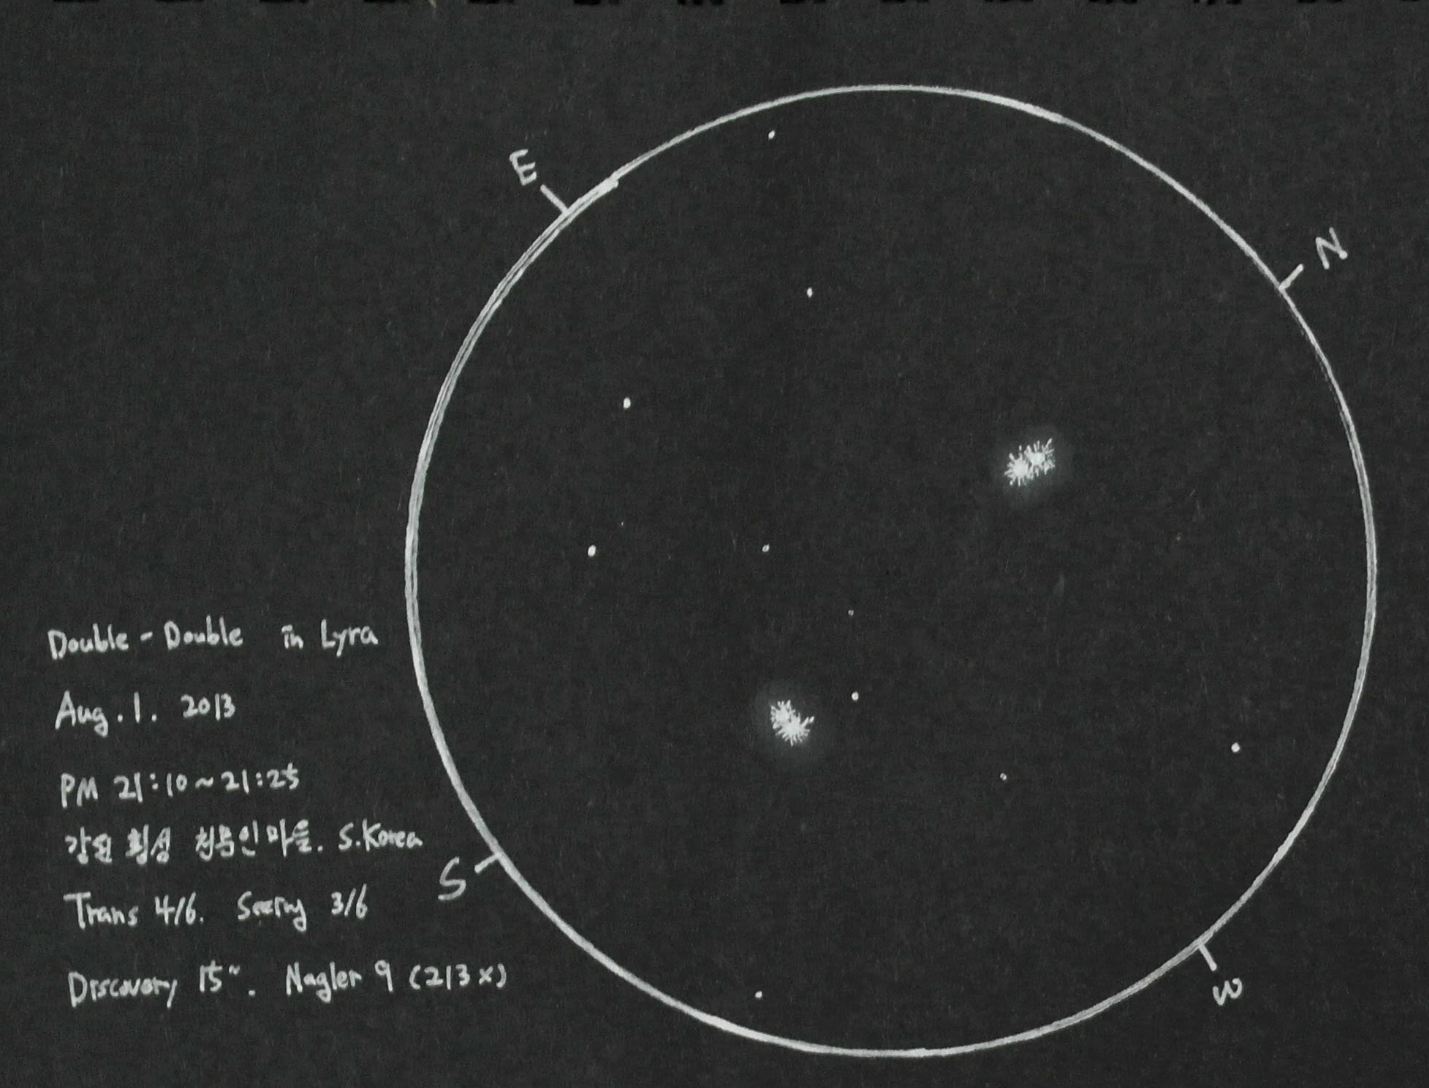 E
N
Double - Double in Lyra
Aug. 1. 2013
PM 21:10 ~ 21:25
강원 횡성 천문인마을. S.Korea
S
Trans 4/6. Seeing 3/6
Discovery 15". Nagler 9 (213x)
W